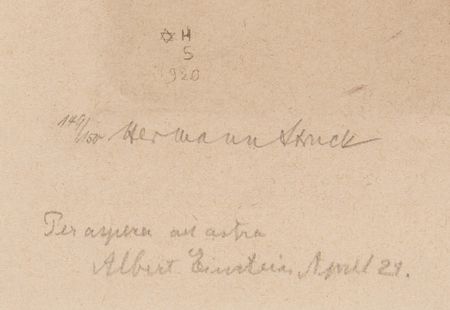 ✡ H
S
1920
140/150 Hermann Struck
Per aspera ad astra
Albert Einstein. April 21.